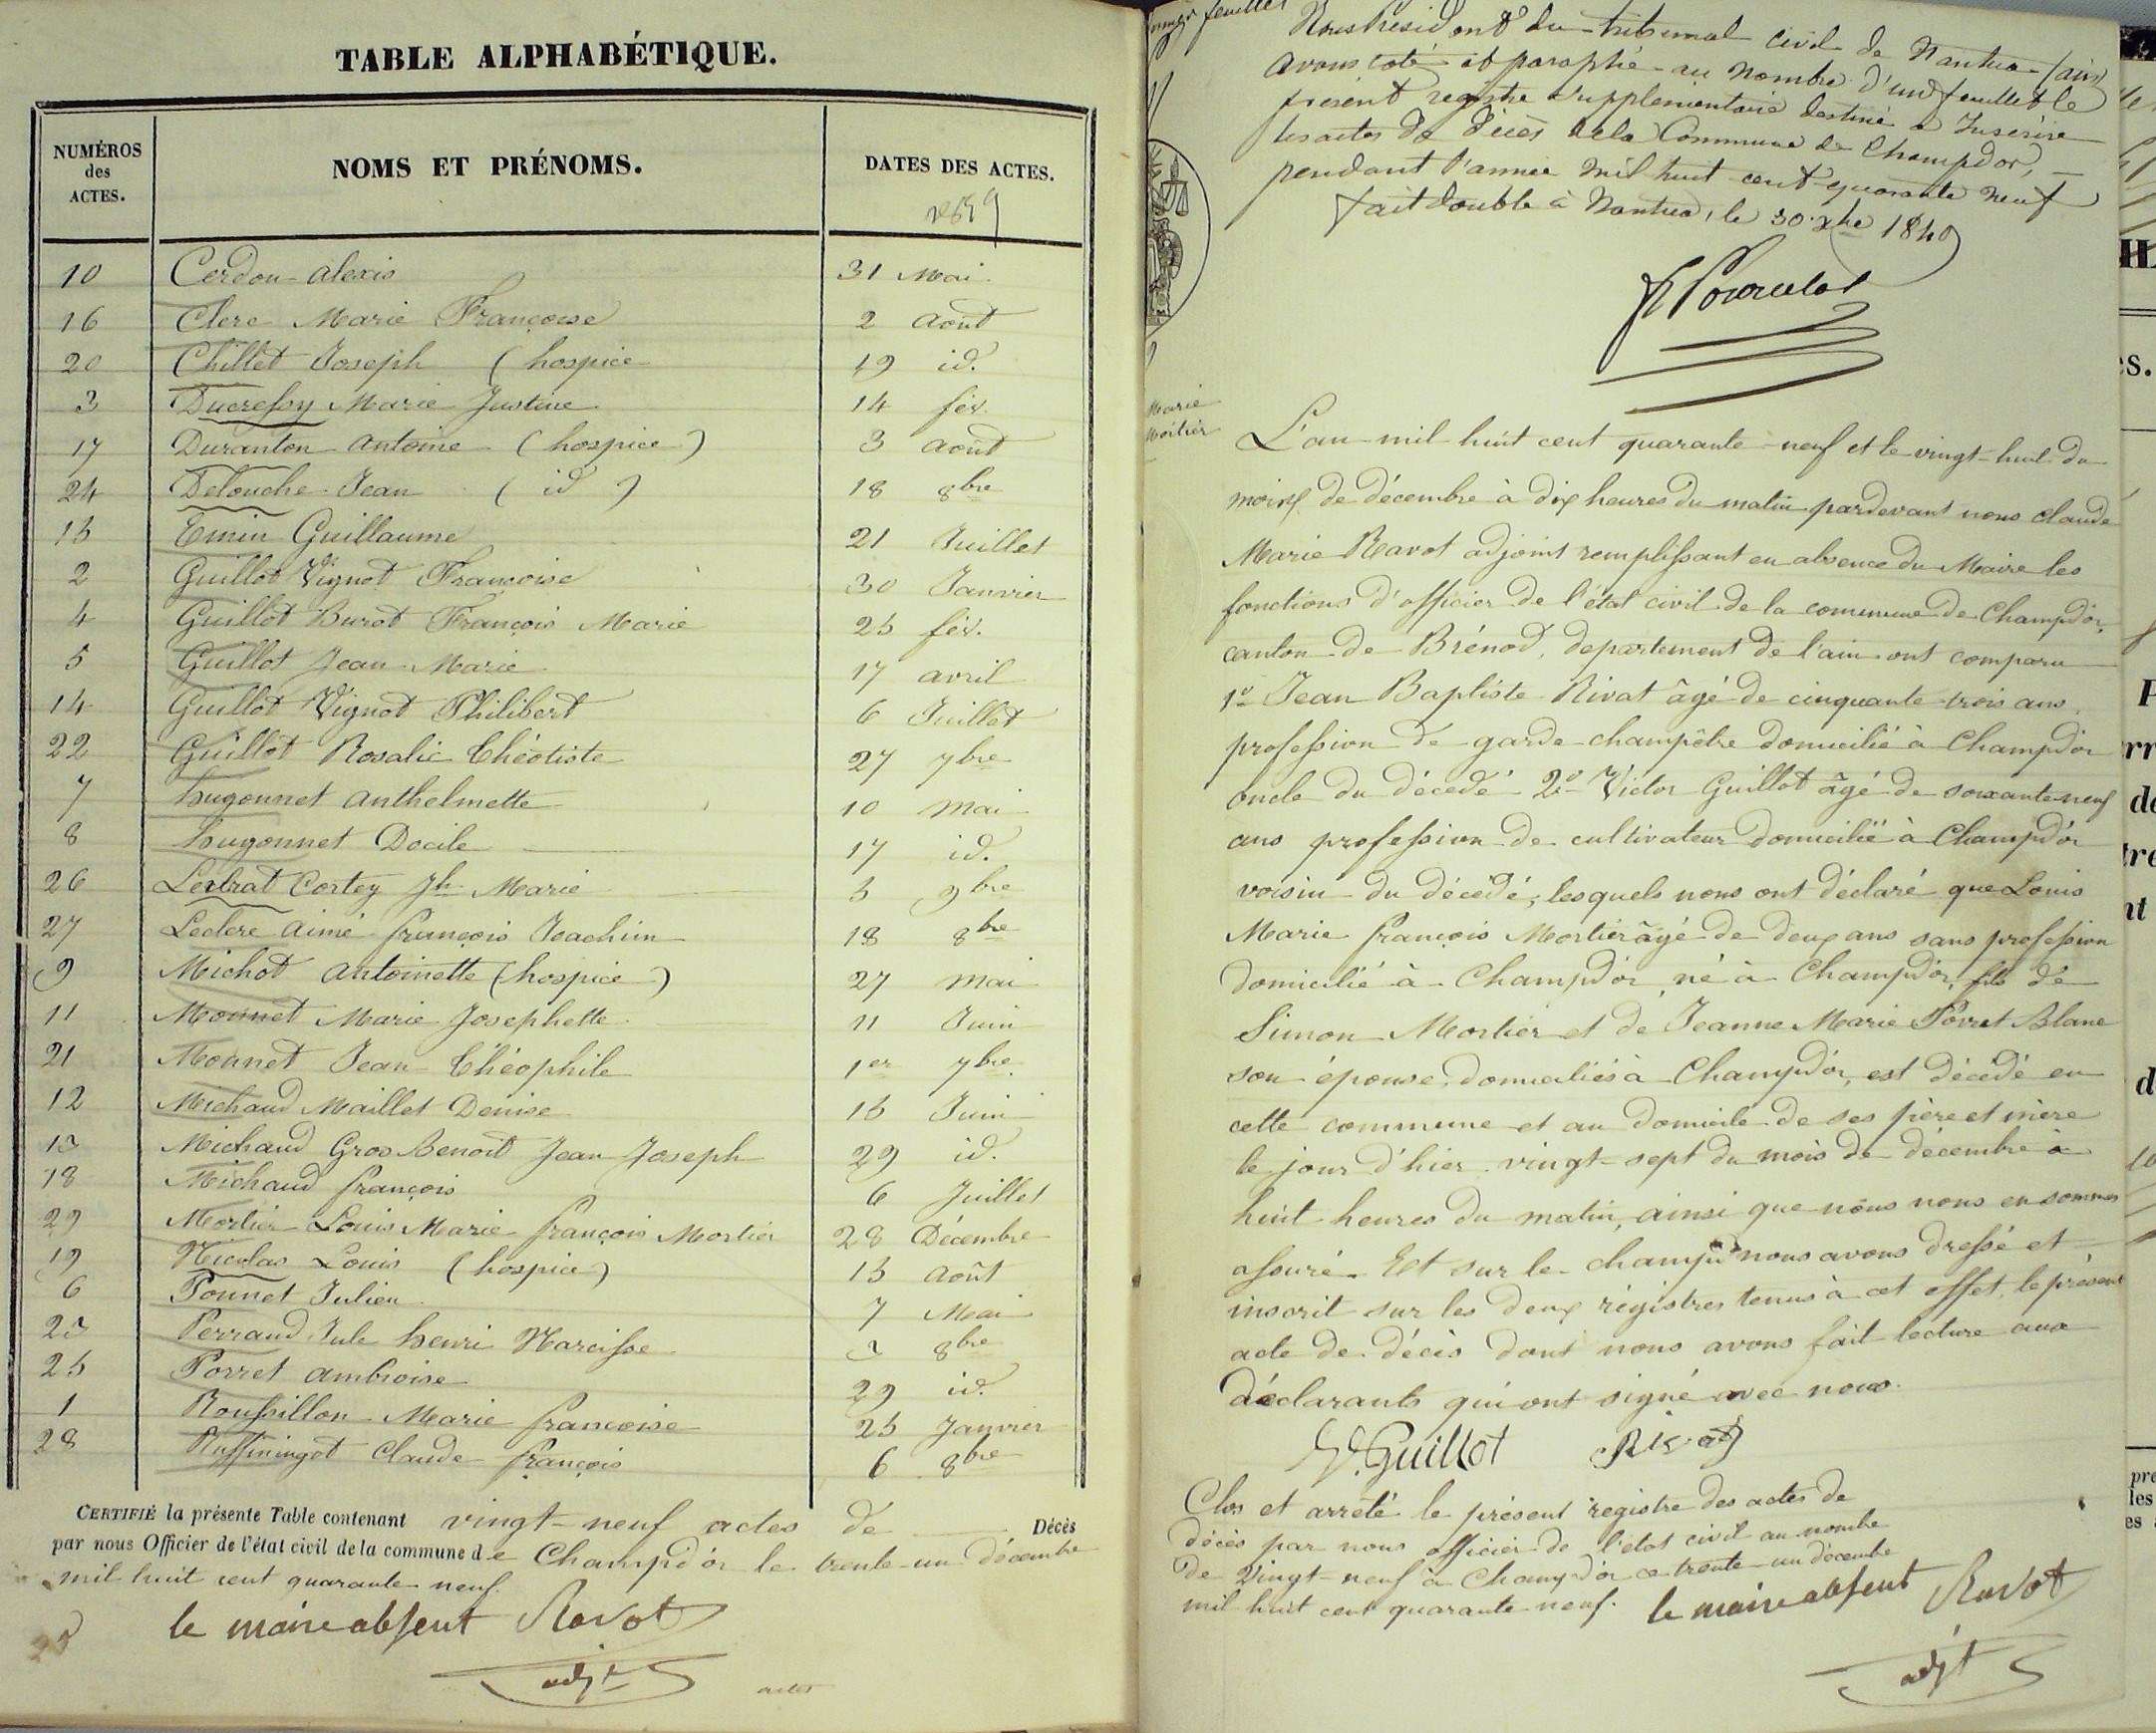 TABLE ALPHABÉTIQUE.
NUMÉROS des ACTES. NOMS ET PRÉNOMS. DATES DES ACTES.
10 Cerdon alexis 31 Mai
16 Clerc Marie Françoise 2 Août
20 Chillet Joseph (hospice 19 id.
3 Ducressy Marie Justine 14 fév.
17 Duranton antoine (hospice) 3 Août
24 Delouche Jean (id) 18 8bre
15 Emin Guillaume 21 Juillet
2 Guillot Vignot Françoise 30 Janvier
4 Guillot Burot François Marie 25 fév.
5 Guillot Jean Marie 17 avril
14 Guillot Vignot Philibert 6 Juillet
22 Guillot Rosalie Théotiste 27 7bre
7 hugonnet anthelmette 10 Mai
8 hugonnet Docile 17 id.
26 Lextrat Cortey Jh Marie 5 9bre
27 Leclerc aimé françois Joachim 18 8bre
9 Michot antoinette (hospice) 27 Mai
11 Monnet Marie Josephette 11 Juin
21 Monnet Jean Théophile 1er 7bre
12 Michaud Maillet Denise 15 Juin
13 Michaud Gros Benoît Jean Joseph 29 id.
18 Michaud françois 6 Juillet
29 Mortier Louis Marie françois Mortier 28 Décembre
19 Nicolas Louis (hospice) 15 Août
6 Ponnet Julien 7 Mai
23 Perraud Jule henri Narcisse 3 8bre
25 Porret ambroise 29 id.
1 Roussillon Marie françoise 25 Janvier
28 Claude françois 6 8bre
CERTIFIÉ la présente Table contenant vingt-neuf actes de Décès
par nous Officier de l'état civil de la commune de Champd'or le trente-un décembre
mil huit cent quarante neuf.
le maire absent Ravot
adjt
actes
premier feuillet
Nous Président du tribunal civil de Nantua (ain)
avons coté et paraphé au nombre d'un feuillet le
présent registre supplémentaire destiné à Inscrire
les actes de décès de la Commune de Champdor,
pendant l'année mil huit cent quarante neuf
fait double à Nantua, le 30 xbre 1849
Marie
Mortier
L'an mil huit cent quarante-neuf et le vingt-huit du
mois de décembre à dix heures du matin pardevant nous Claude
Marie Ravot adjoint remplissant en absence du Maire les
fonctions d'officier de l'état civil de la commune de Champd'or,
canton de Brénod, departement de l'ain ont comparu
1° Jean Baptiste Rivat âgé de cinquante-trois ans
profession de garde-champêtre domicilié à Champd'or
oncle du décédé 2° Victor Guillot âgé de soixante-neuf
ans profession de cultivateur domicilié à Champd'or
voisin du décédé, lesquels nous ont déclaré que Louis
Marie françois Mortier âgé de deux ans sans profession
domicilié à Champd'or, né à Champd'or, fils de
Simon Mortier et de Jeanne Marie Porret Blanc
son épouse, domiciliés à Champd'or, est décédé en
cette commune et au domicile de ses père et mère
le jour d'hier vingt-sept du mois de décembre à
huit heures du matin, ainsi que nous nous en sommes
assuré. Et sur le champ nous avons dressé et
inscrit sur les deux registres tenus à cet effet, le présent
acte de décès dont nous avons fait lecture aux
déclarants qui ont signé avec nous.
V. Guillot Rivat
Clos et arrêté le présent registre des actes de
décès par nous officier de l'état civil au nombre
de vingt-neuf à Champd'or ce trente-un décembre
mil huit cent quarante neuf. le maire absent Ravot
adjt